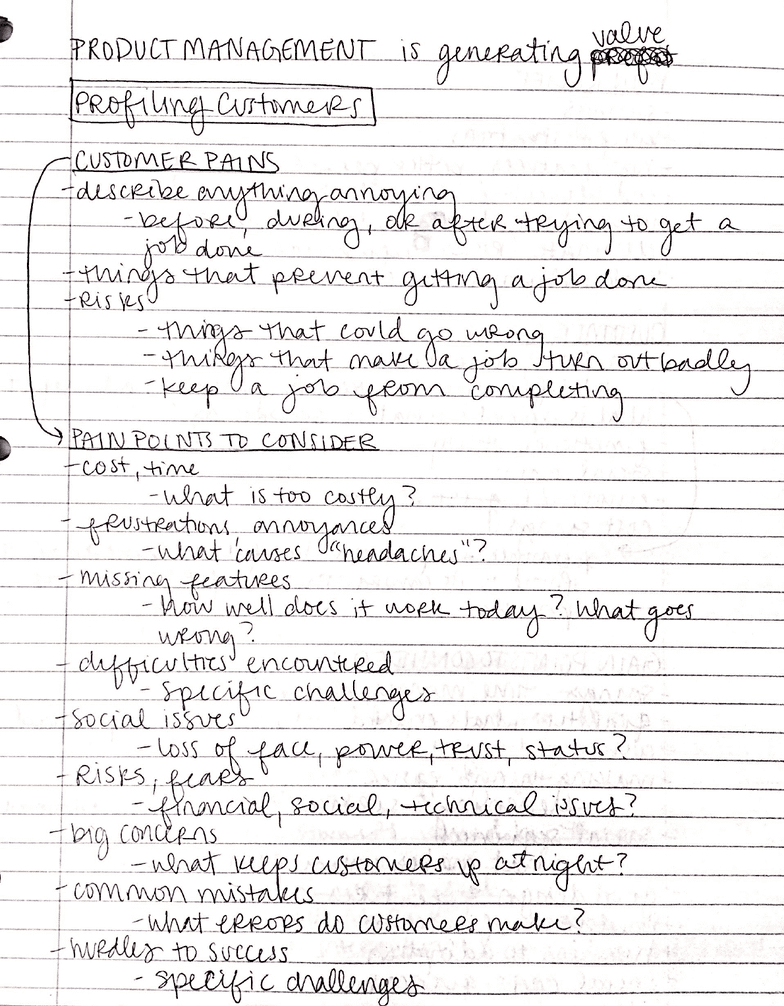 PRODUCT MANAGEMENT is generating value
PROFILING CUSTOMERS
CUSTOMER PAINS
- describe anything annoying
- before, during, or after trying to get a
job done
- things that prevent getting a job done
- Risks
- things that could go wrong
- things that make a job turn out badly
- keep a job from completing
PAIN POINTS TO CONSIDER
- cost, time
- what is too costly?
- frustrations, annoyances
- what causes "headaches"?
- missing features
- how well does it work today? What goes
wrong?
- difficulties encountered
- specific challenges
- social issues
- loss of face, power, trust, status?
- Risks, fears
- financial, social, technical issues?
- big concerns
- what keeps customers up at night?
- common mistakes
- what errors do customers make?
- hurdles to success
- specific challenges